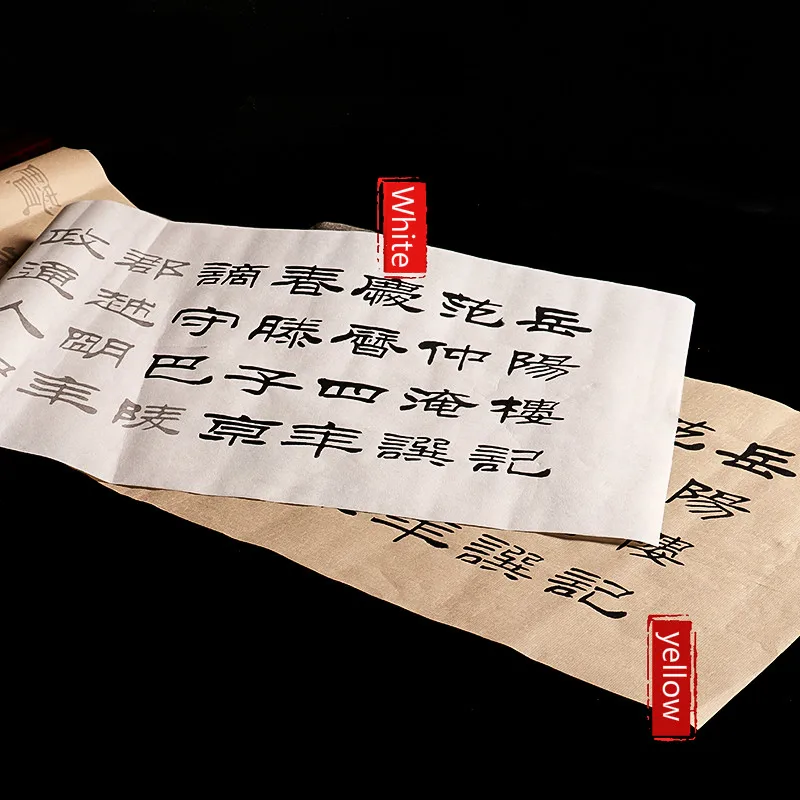 岳陽樓記
范仲淹譔
慶曆四年
春滕子京
謫守巴陵
郡越明年
政通人
White
岳陽樓記
范
譔
年
yellow